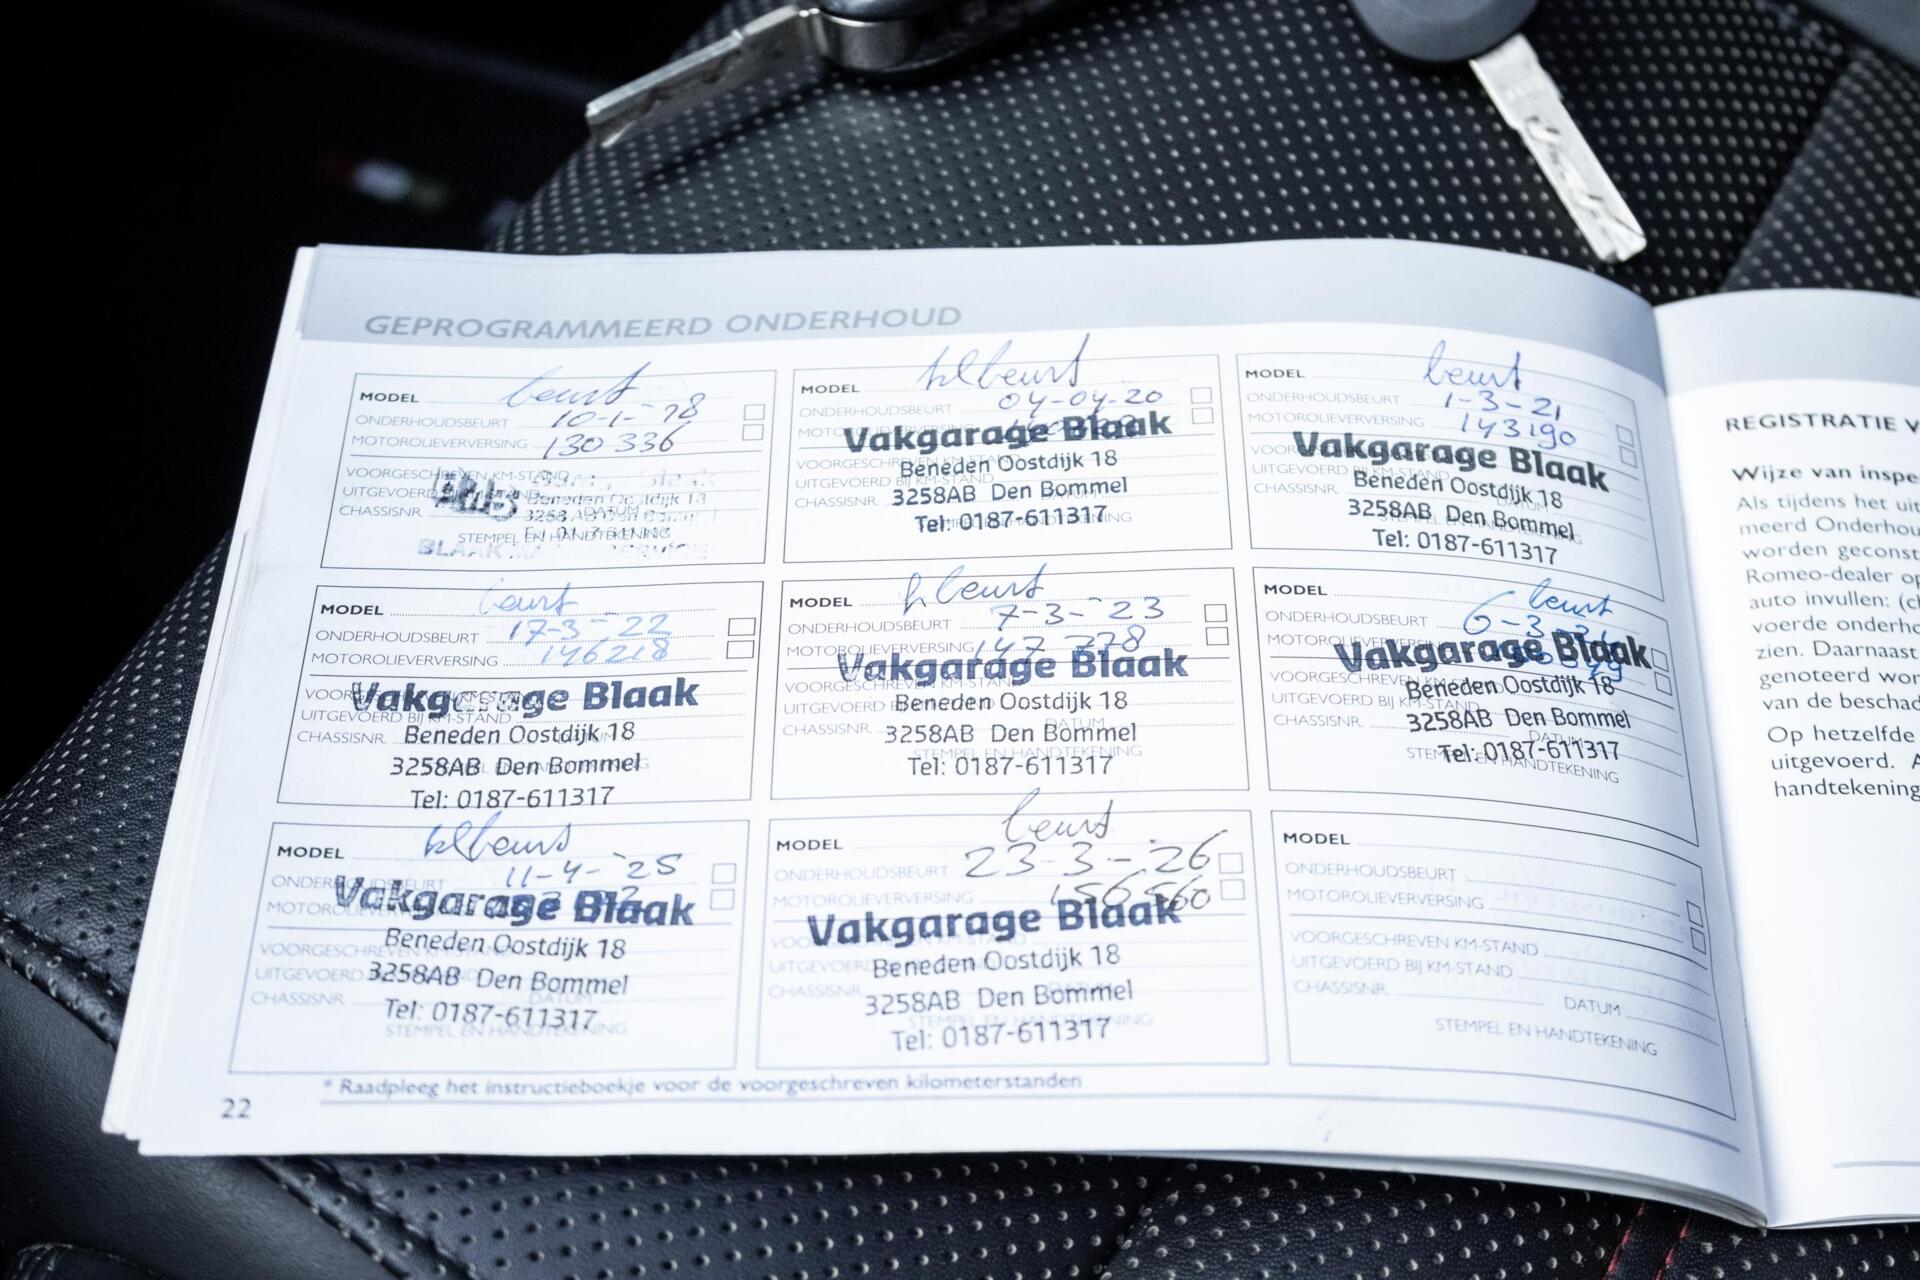 GEPROGRAMMEERD ONDERHOUD
MODEL beurt
ONDERHOUDSBEURT 10-1-'18
MOTOROLIEVERVERSING 130 336
VOORGESCHREVEN KM-STAND
UITGEVOERD BIJ KM-STAND
Beneden Oostdijk 18
CHASSISNR. DATUM
3258 AB Den Bommel
STEMPEL EN HANDTEKENING
BLAAK
MODEL klbeurt
ONDERHOUDSBEURT 04-04-20
MOTOROLIEVERVERSING
Vakgarage Blaak
VOORGESCHREVEN KM-STAND
Beneden Oostdijk 18
UITGEVOERD BIJ KM-STAND
CHASSISNR.
3258AB Den Bommel
Tel: 0187-611317
STEMPEL EN HANDTEKENING
MODEL beurt
ONDERHOUDSBEURT 1-3-21
MOTOROLIEVERVERSING 143190
Vakgarage Blaak
UITGEVOERD BIJ KM-STAND
Beneden Oostdijk 18
CHASSISNR. DATUM
3258AB Den Bommel
STEMPEL EN HANDTEKENING
Tel: 0187-611317
MODEL beurt
ONDERHOUDSBEURT 17-3-'22
MOTOROLIEVERVERSING 146218
Vakgarage Blaak
VOORGESCHREVEN KM-STAND
UITGEVOERD BIJ KM-STAND
Beneden Oostdijk 18
CHASSISNR. DATUM
3258AB Den Bommel
STEMPEL EN HANDTEKENING
Tel: 0187-611317
MODEL k beurt
ONDERHOUDSBEURT 7-3-'23
MOTOROLIEVERVERSING 147 778
Vakgarage Blaak
VOORGESCHREVEN KM-STAND
UITGEVOERD BIJ KM-STAND
Beneden Oostdijk 18
CHASSISNR. DATUM
3258AB Den Bommel
STEMPEL EN HANDTEKENING
Tel: 0187-611317
MODEL beurt
ONDERHOUDSBEURT 6-3-
MOTOROLIEVERVERSING
Vakgarage Blaak
VOORGESCHREVEN KM-STAND
Beneden Oostdijk 18
UITGEVOERD BIJ KM-STAND
CHASSISNR. DATUM
3258AB Den Bommel
STEMPEL EN HANDTEKENING
Tel: 0187-611317
MODEL klbeurt
ONDERHOUDSBEURT 11-4-'25
MOTOROLIEVERVERSING
Vakgarage Blaak
VOORGESCHREVEN KM-STAND
Beneden Oostdijk 18
UITGEVOERD BIJ KM-STAND
3258AB Den Bommel
CHASSISNR. DATUM
Tel: 0187-611317
STEMPEL EN HANDTEKENING
MODEL beurt
ONDERHOUDSBEURT 23-3-'26
MOTOROLIEVERVERSING 156560
Vakgarage Blaak
VOORGESCHREVEN KM-STAND
UITGEVOERD BIJ KM-STAND
Beneden Oostdijk 18
CHASSISNR. DATUM
3258AB Den Bommel
STEMPEL EN HANDTEKENING
Tel: 0187-611317
MODEL
ONDERHOUDSBEURT
MOTOROLIEVERVERSING
VOORGESCHREVEN KM-STAND
UITGEVOERD BIJ KM-STAND
CHASSISNR. DATUM
STEMPEL EN HANDTEKENING
* Raadpleeg het instructieboekje voor de voorgeschreven kilometerstanden
22
REGISTRATIE V
Wijze van inspe
Als tijdens het uit
meerd Onderhou
worden geconst
Romeo-dealer op
auto invullen: (ch
voerde onderho
zien. Daarnaast
genoteerd wor
van de beschad
Op hetzelfde
uitgevoerd. A
handtekening